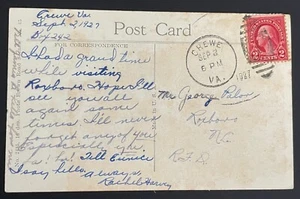 Crewe Va
Sept. 2, 1927
Bx 242
Post Card
FOR CORRESPONDENCE
I had a grand time
while visiting
Roxboro. Hope I'll
see you all
again some
times. I'll never
forget any of you
Especially
Tell Eunice
I say hello.
Always
Rachel Harvey
CREWE
SEP 2
6 PM
VA.
1927
2 CENTS 2
Mr. George
Roxboro
N.C.
R.F.D.